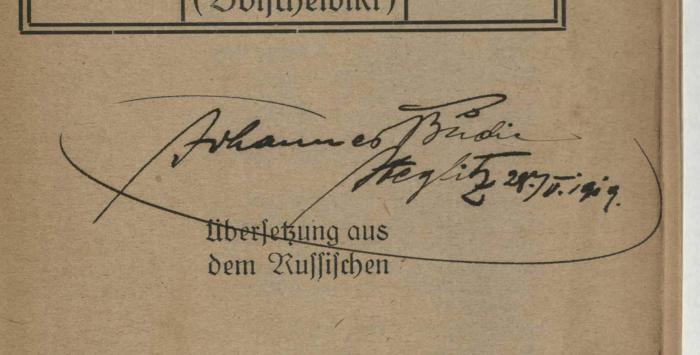 (Bolschewiki)
Johannes Büdin
Steglitz 28./V. 1919.
Übersetzung aus
dem Russischen